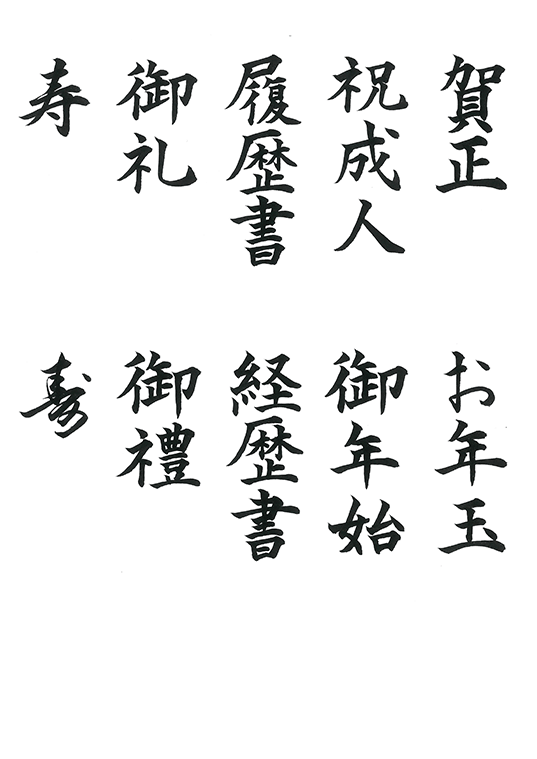 賀正
祝成人
履歴書
御礼
寿
お年玉
御年始
経歴書
御禮
寿